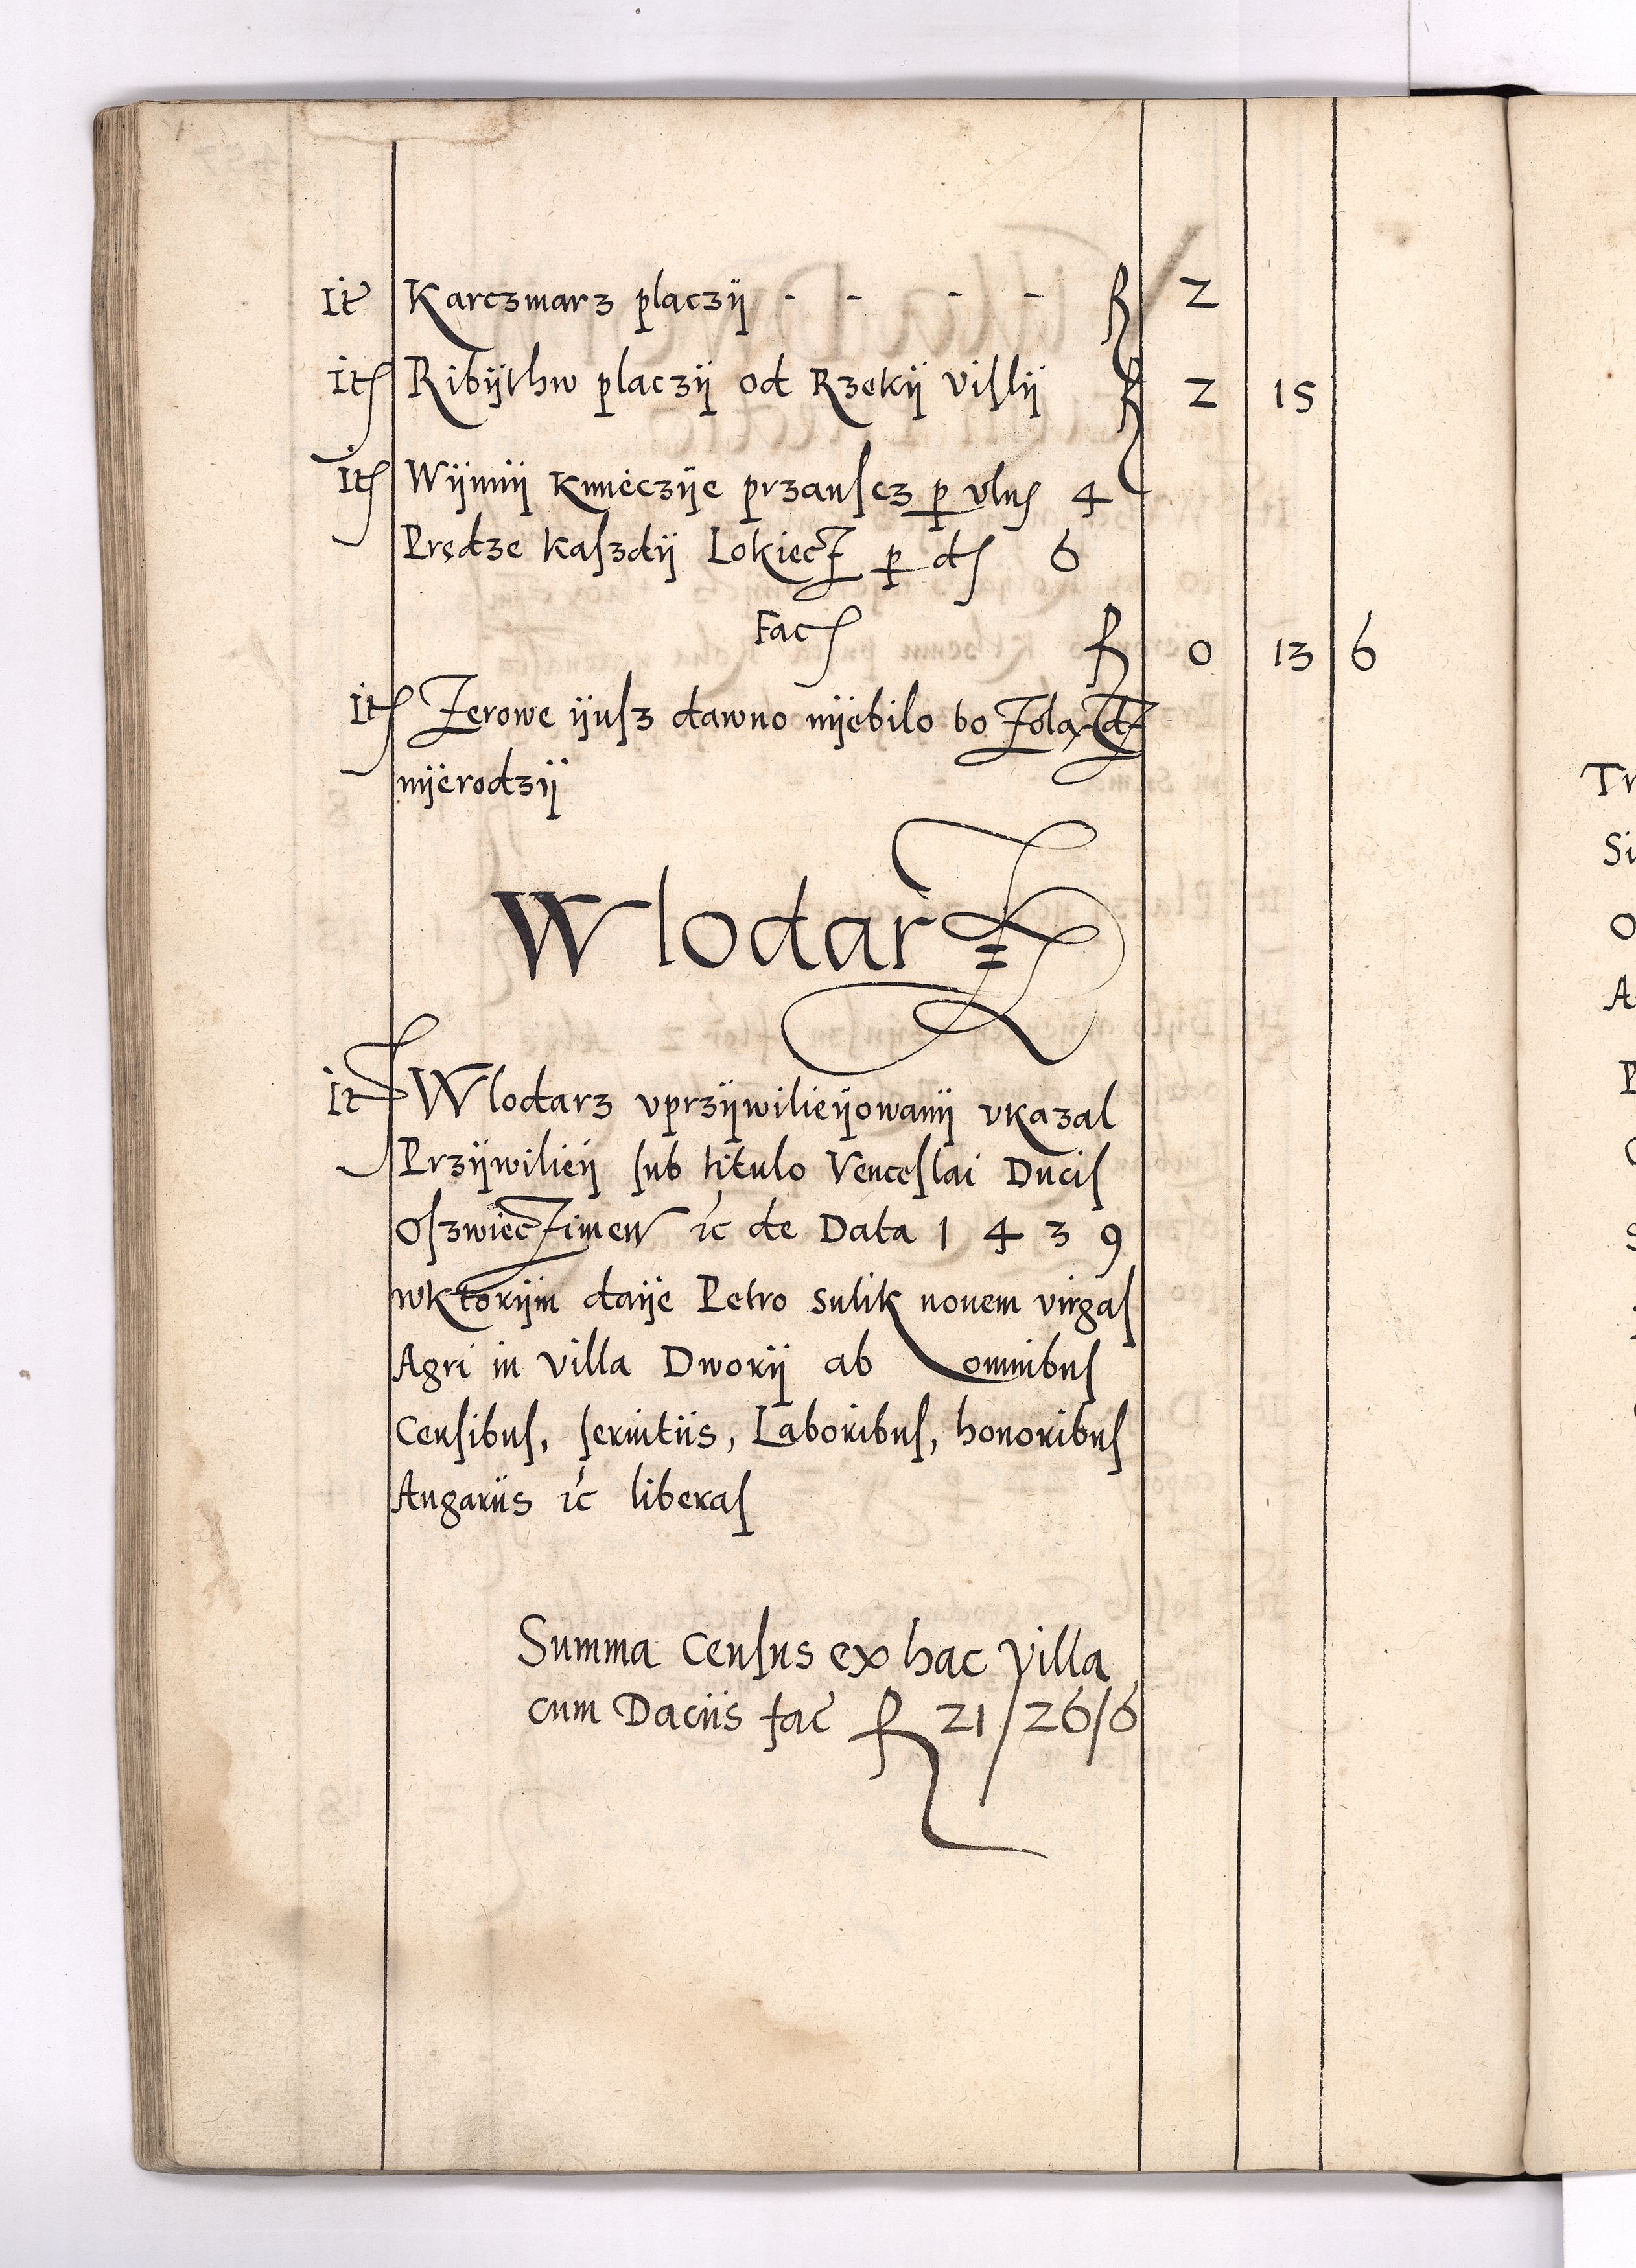 It Karczmarz placzÿ - - - - fl 2
Itſ Ribÿthw placzÿ od Rzekÿ Viſlÿ fl 2 15
Itſ Wÿnnÿ kmieczÿe przanſcz p vlnſ 4
Prędze kaſzdÿ Lokiecz p dſ 6
Facſ fl 0 13 6
Itſ Zerowe ÿuſz dawno nÿebilo bo Zolądz
nÿerodzÿ
Wlodarz
It Wlodarz vprzÿwilieÿowanÿ vkazal
Przÿwilieÿ ſub titulo Venceſlai Duciſ
Oſzwieczimen ꝛc de Data 1439
wktorÿm daÿe Petro Sulik nouem virgaſ
Agri in villa Dworÿ ab omnibuſ
Cenſibuſ, ſeruitiis, Laboribuſ, honoribuſ
Angariis ꝛc liberaſ
Summa Cenſus ex hac villa
cum Daciis fac fl 21/26/6
Tr
Si
O
A